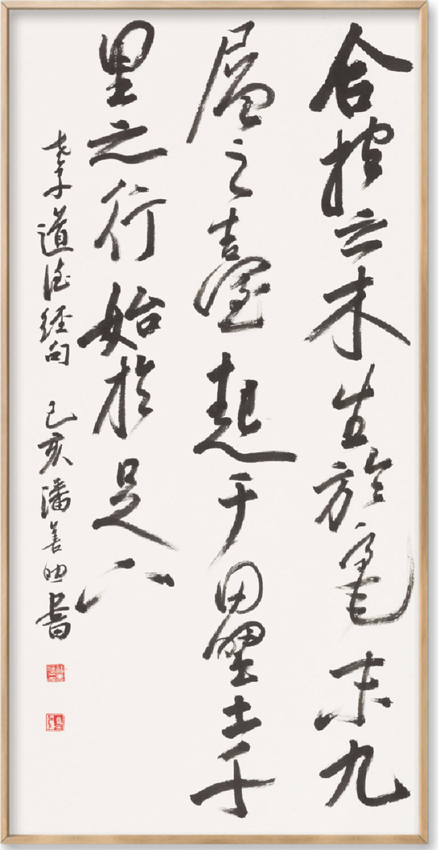 合抱之木生於毫末九
層之臺起于累土千
里之行始於足下
老子道德經句 己亥潘善助書